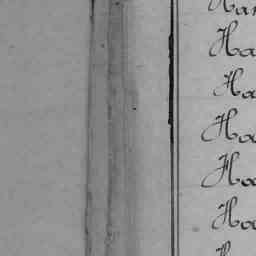 Han
Ha
Ha
Ha
Ha
Ha